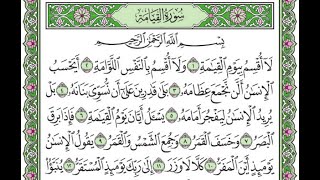 سُورَةُ القِيَامَة
بِسْمِ اللَّهِ الرَّحْمَٰنِ الرَّحِيمِ
لَآ أُقْسِمُ بِيَوْمِ ٱلْقِيَٰمَةِ ١ وَلَآ أُقْسِمُ بِٱلنَّفْسِ ٱللَّوَّامَةِ ٢ أَيَحْسَبُ
ٱلْإِنسَٰنُ أَلَّن نَّجْمَعَ عِظَامَهُۥ ٣ بَلَىٰ قَٰدِرِينَ عَلَىٰٓ أَن نُّسَوِّىَ بَنَانَهُۥ ٤ بَلْ
يُرِيدُ ٱلْإِنسَٰنُ لِيَفْجُرَ أَمَامَهُۥ ٥ يَسْـَٔلُ أَيَّانَ يَوْمُ ٱلْقِيَٰمَةِ ٦ فَإِذَا بَرِقَ
ٱلْبَصَرُ ٧ وَخَسَفَ ٱلْقَمَرُ ٨ وَجُمِعَ ٱلشَّمْسُ وَٱلْقَمَرُ ٩ يَقُولُ ٱلْإِنسَٰنُ
يَوْمَئِذٍ أَيْنَ ٱلْمَفَرُّ ١٠ كَلَّا لَا وَزَرَ ١١ إِلَىٰ رَبِّكَ يَوْمَئِذٍ ٱلْمُسْتَقَرُّ ١٢ يُنَبَّؤُا۟